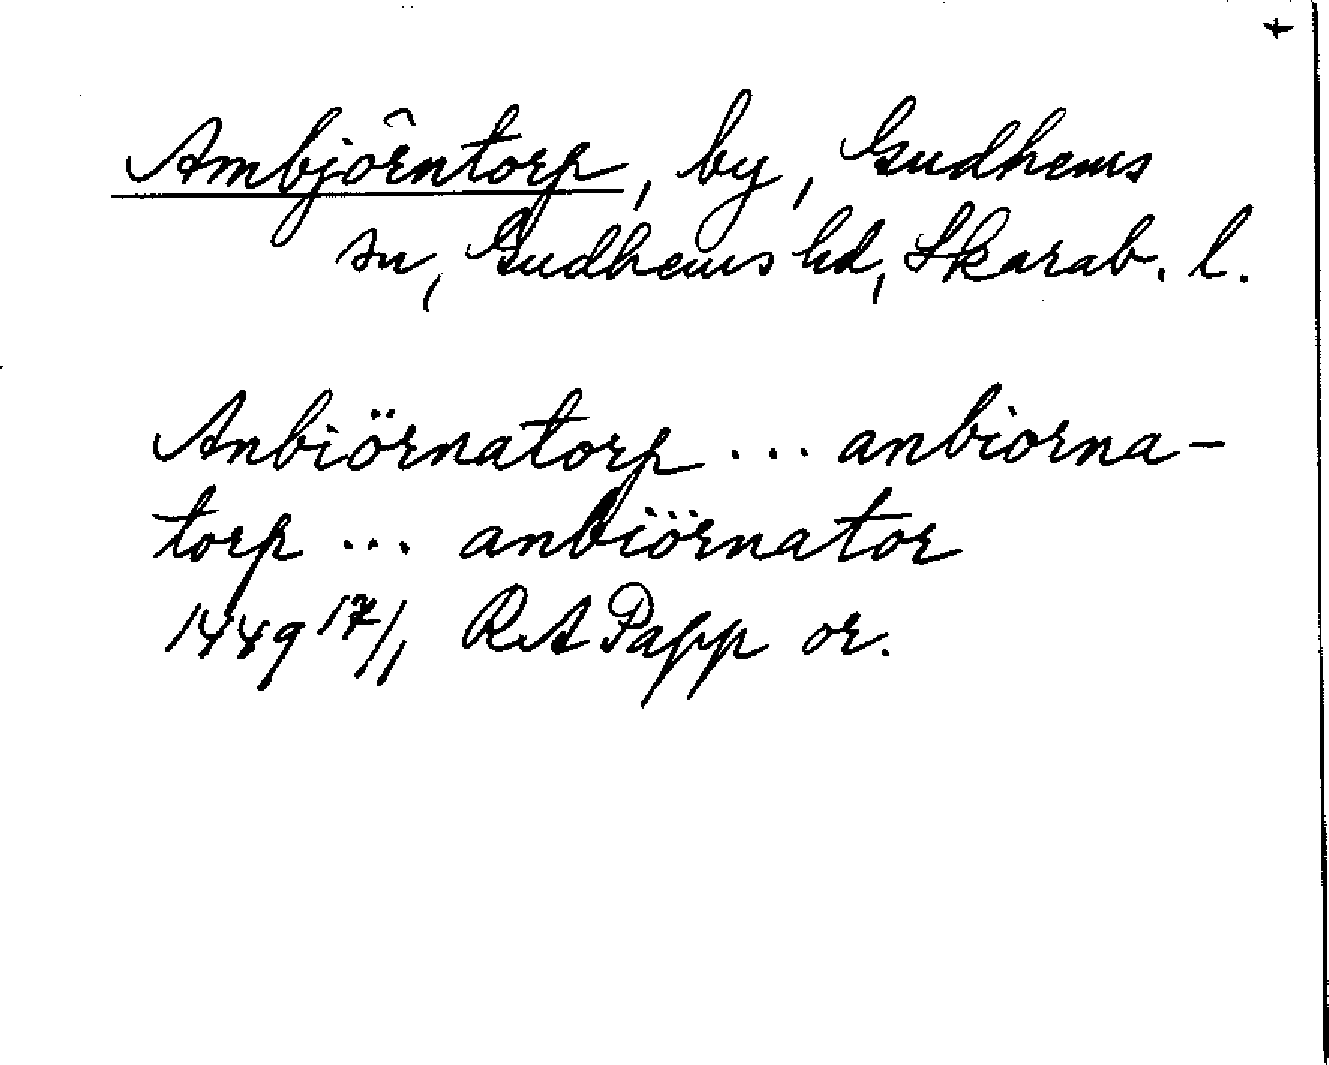 +
Ambjörntorp, by, Gudhems
sn, Gudhems hd, Skarab. l.
Anbiörnatorp ... anbiorna-
torp ... anbiörnator
1449 17/1 RA Papp or.